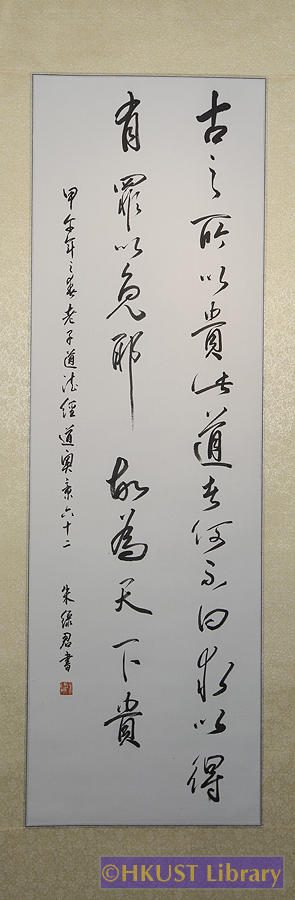 古之所以貴此道者何不曰求以得
有罪以免耶 故為天下貴
甲午年之春老子道德經道奧章六十二 朱綠君書
©HKUST Library